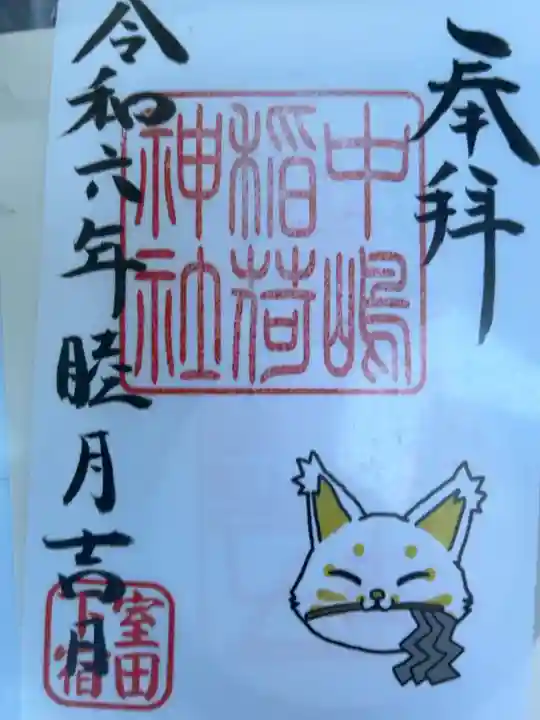 奉拝
中嶋
稲荷
神社
令和六年睦月吉日
室田
下宿